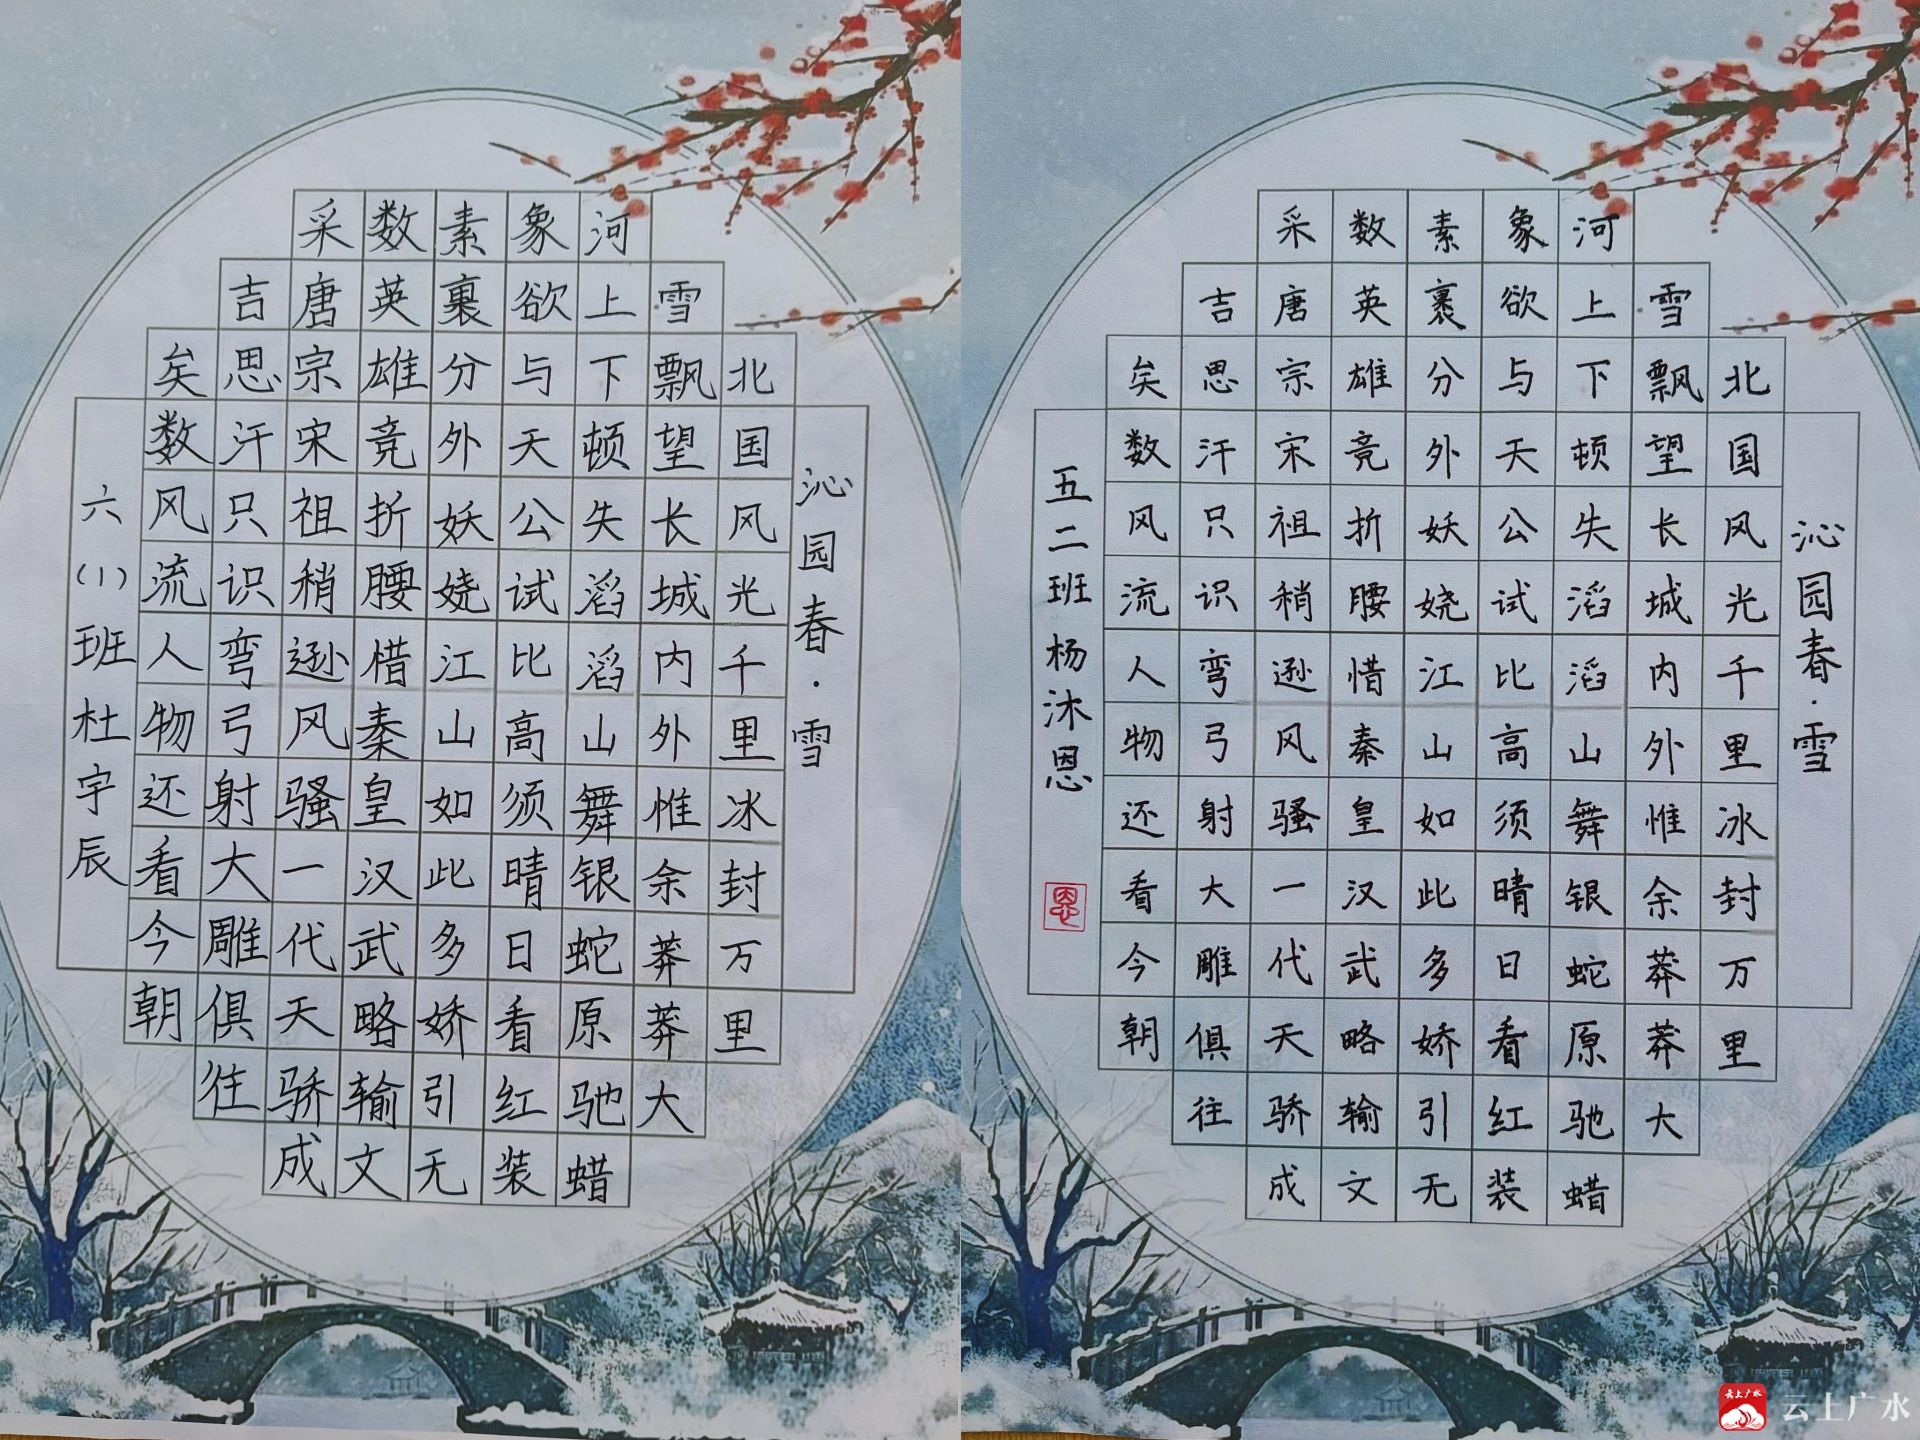 沁园春·雪
北国风光千里冰封万里
雪飘望长城内外惟余莽莽大
河上下顿失滔滔山舞银蛇原驰蜡
象欲与天公试比高须晴日看红装
素裹分外妖娆江山如此多娇引无
数英雄竞折腰惜秦皇汉武略输文
采唐宗宋祖稍逊风骚一代天骄成
吉思汗只识弯弓射大雕俱往
矣数风流人物还看今朝
六(1)班杜宇辰
沁园春·雪
北国风光千里冰封万里
雪飘望长城内外惟余莽莽大
河上下顿失滔滔山舞银蛇原驰蜡
象欲与天公试比高须晴日看红装
素裹分外妖娆江山如此多娇引无
数英雄竞折腰惜秦皇汉武略输文
采唐宗宋祖稍逊风骚一代天骄成
吉思汗只识弯弓射大雕俱往
矣数风流人物还看今朝
五二班杨沐恩
恩
云上广水
云上广水